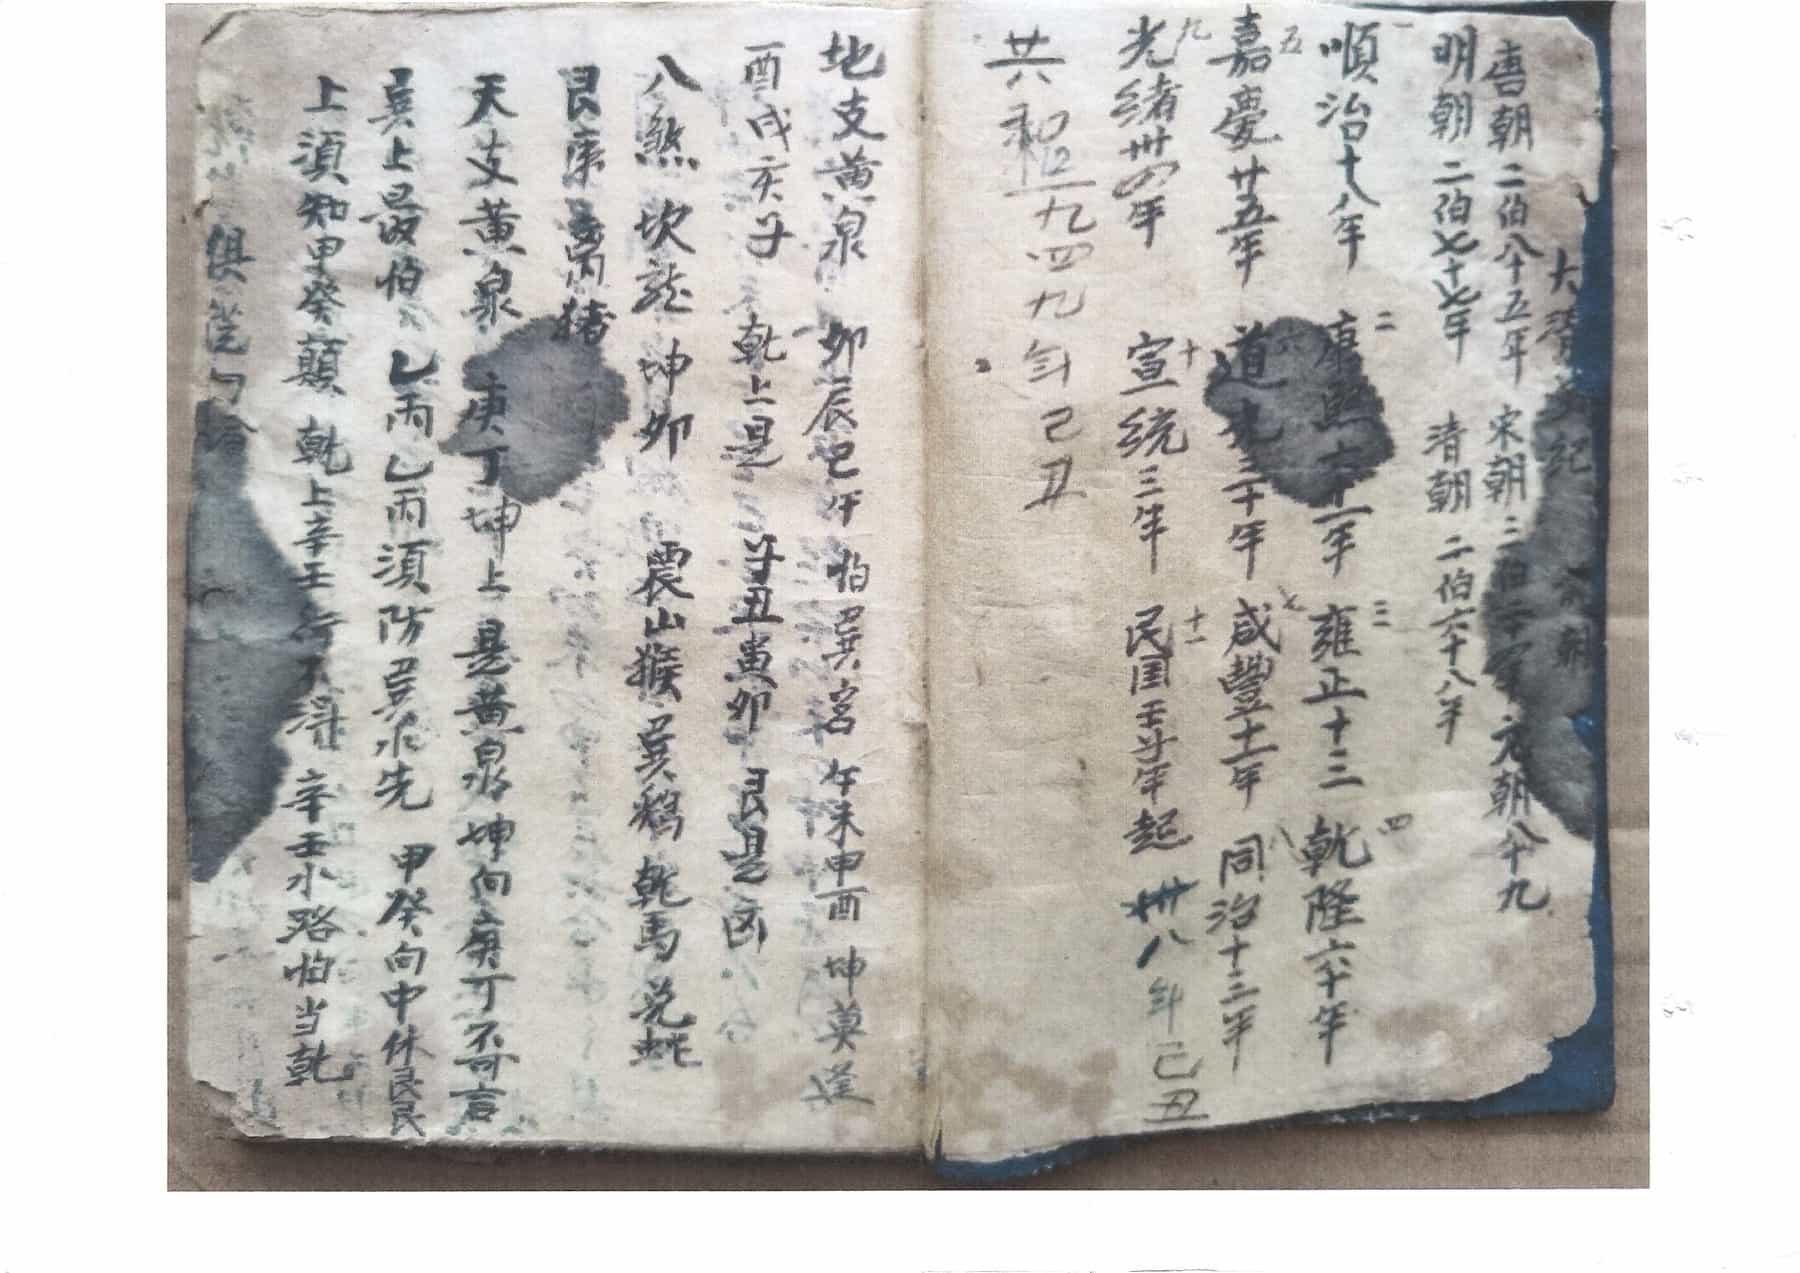 大清 纪 朝
唐朝二伯八十五年 宋朝三伯二十年 元朝八十九
明朝二伯七十七年 清朝二伯六十八年
一順治十八年 二康熙六十一年 三雍正十三 四乾隆六十年
五嘉慶廿五年 六道光三十年 七咸豐十一年 八同治十三年
九光緒卅四年 十宣統三年 十一民国壬子年起 卅八年己丑
共和 一九四九年己丑
地支黄泉 卯辰巳午怕巽宮 午未申酉坤莫逢
酉戌亥子乾上是 子丑寅卯艮是凶
八煞坎龙坤卯 震山猴巽鷄乾馬兑蛇
艮虎离猪
天支黄泉 庚丁坤上是黄泉 坤向庚丁不可言
巽上最怕乙丙 乙丙須防巽水先 甲癸向中休見艮
上須知甲癸顛 乾上辛壬行不得 辛壬水路怕当乾
俱